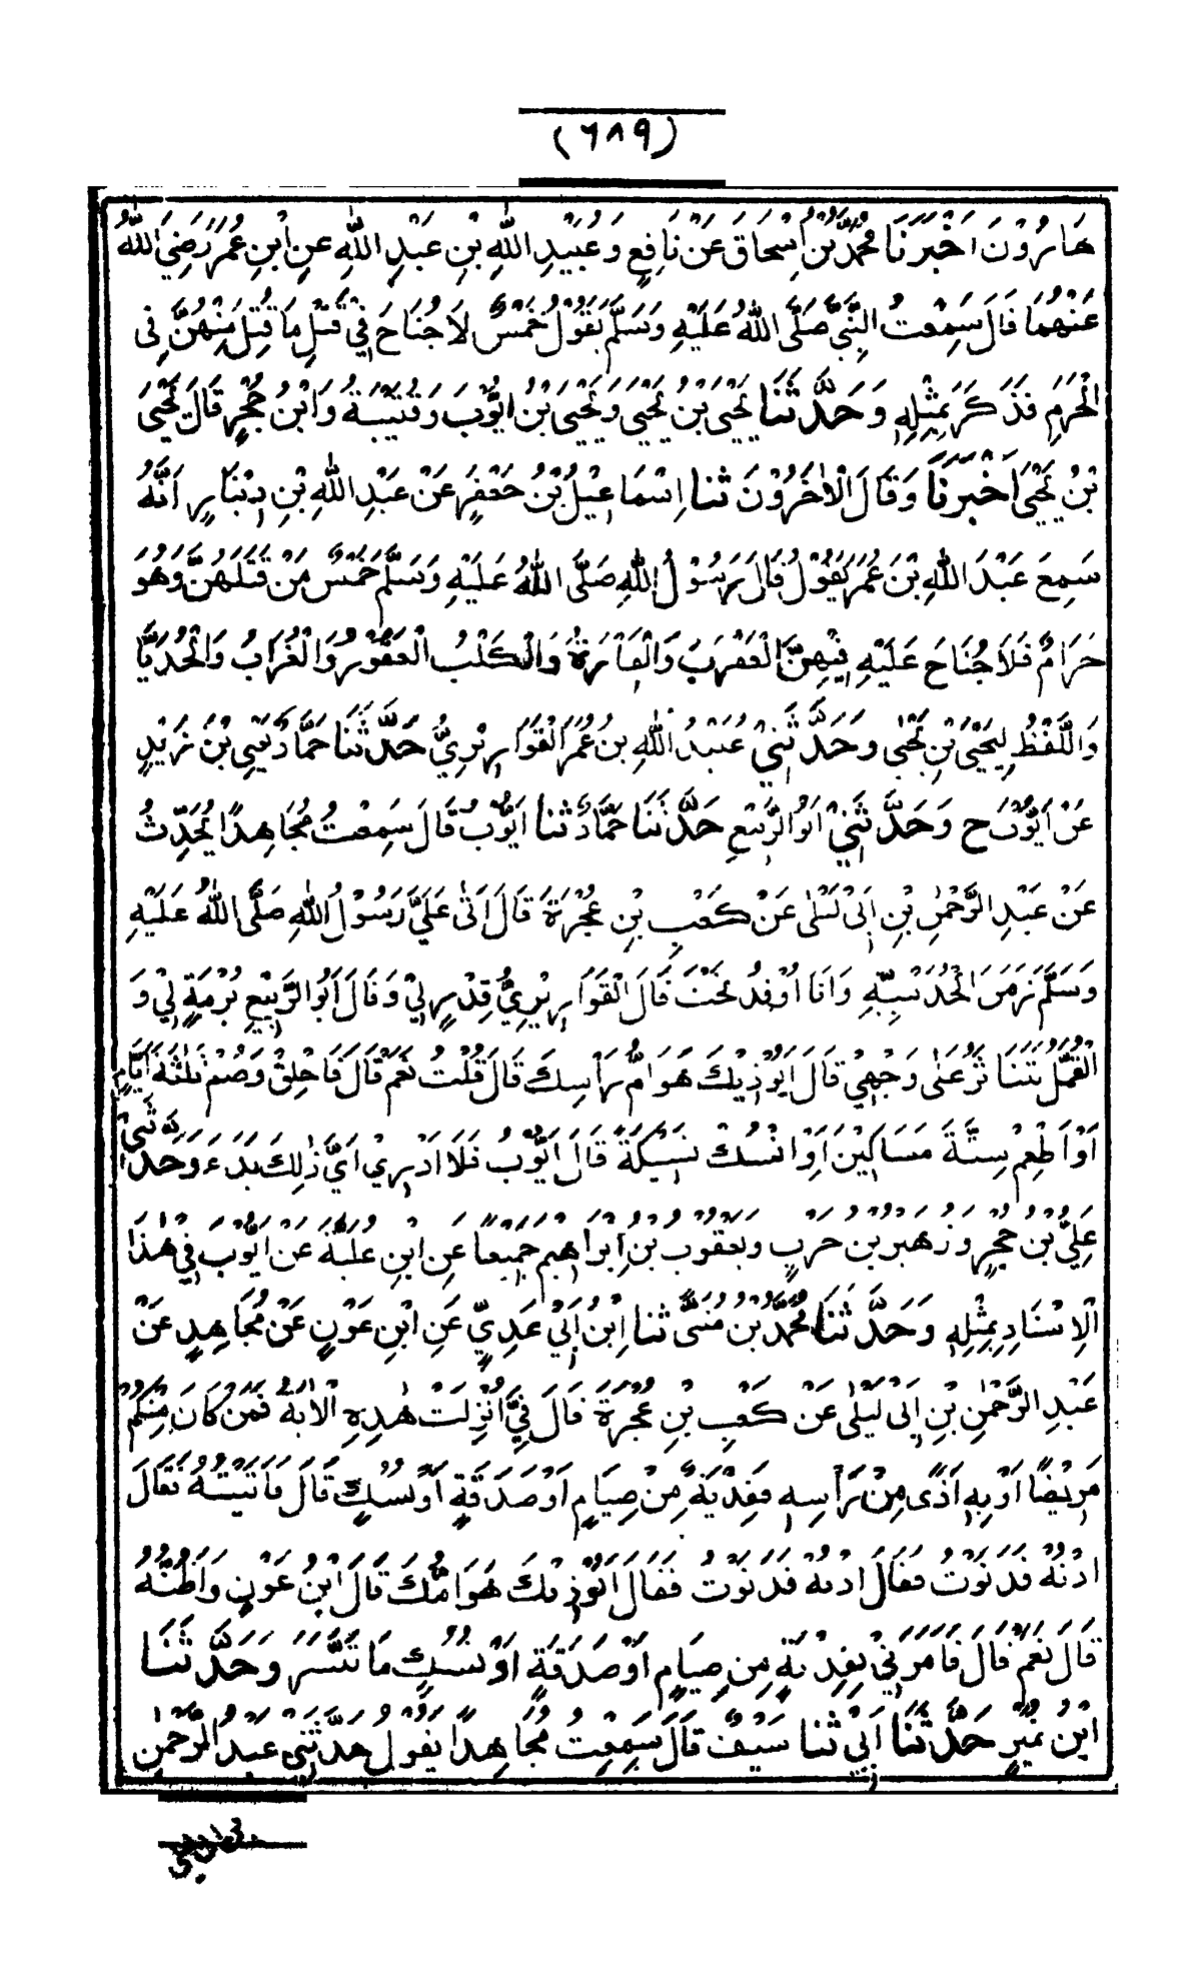 (٦٨٩)
هَارُوْنَ اَخْبَرَنَا مُحَمَّدُ بْنُ اِسْحَاقَ عَنْ نَافِعٍ وَعُبَيْدِ اللّٰهِ بْنِ عَبْدِ اللّٰهِ عَنِ ابْنِ عُمَرَ رَضِيَ اللّٰهُ
عَنْهُمَا قَالَ سَمِعْتُ النَّبِيَّ صَلَّى اللّٰهُ عَلَيْهِ وَسَلَّمَ يَقُوْلُ خَمْسٌ لَا جُنَاحَ فِيْ قَتْلِ مَا قُتِلَ مِنْهُنَّ فِى
الْحَرَمِ فَذَكَرَ بِمِثْلِهٖ وَحَدَّثَنَا يَحْيَى بْنُ يَحْيَى وَيَحْيَى بْنُ اَيُّوْبَ وَقُتَيْبَةُ وَابْنُ حُجْرٍ قَالَ يَحْيَى
بْنُ يَحْيَى اَخْبَرَنَا وَقَالَ الْاٰخَرُوْنَ ثنا اِسْمَاعِيْلُ بْنُ جَعْفَرٍ عَنْ عَبْدِ اللّٰهِ بْنِ دِيْنَارٍ اَنَّهُ
سَمِعَ عَبْدَ اللّٰهِ بْنَ عُمَرَ يَقُوْلُ قَالَ رَسُوْلُ اللّٰهِ صَلَّى اللّٰهُ عَلَيْهِ وَسَلَّمَ خَمْسٌ مَنْ قَتَلَهُنَّ وَهُوَ
حَرَامٌ فَلَا جُنَاحَ عَلَيْهِ فِيْهِنَّ الْعَقْرَبُ وَالْفَأْرَةُ وَالْكَلْبُ الْعَقُوْرُ وَالْغُرَابُ وَالْحُدَيَّا
وَاللَّفْظُ لِيَحْيَى بْنِ يَحْيٰى وَحَدَّثَنِيْ عُبَيْدُ اللّٰهِ بْنُ عُمَرَ الْقَوَارِيْرِيُّ حَدَّثَنَا حَمَّادٌ يَعْنِى بْنَ زَيْدٍ
عَنْ اَيُّوْبَ ح وَحَدَّثَنِيْ اَبُو الرَّبِيْعِ حَدَّثَنَا حَمَّادٌ ثنا اَيُّوْبُ قَالَ سَمِعْتُ مُجَاهِدًا يُحَدِّثُ
عَنْ عَبْدِ الرَّحْمٰنِ بْنِ اَبِيْ لَيْلٰى عَنْ كَعْبِ بْنِ عُجْرَةَ قَالَ اَتٰى عَلَيَّ رَسُوْلُ اللّٰهِ صَلَّى اللّٰهُ عَلَيْهِ
وَسَلَّمَ زَمَنَ الْحُدَيْبِيَّةِ وَاَنَا اُوْقِدُ تَحْتَ قَالَ الْقَوَارِيْرِيُّ قِدْرٍ لِيْ وَقَالَ اَبُو الرَّبِيْعِ بُرْمَةٍ لِيْ وَ
الْقَمْلُ يَتَنَاثَرُ عَلٰى وَجْهِيْ قَالَ اَيُؤْذِيْكَ هَوَامُّ رَأْسِكَ قَالَ قُلْتُ نَعَمْ قَالَ فَاحْلِقْ وَصُمْ ثَلٰثَةَ اَيَّامٍ
اَوْ اَطْعِمْ سِتَّةَ مَسَاكِيْنَ اَوِ انْسُكْ نَسِيْكَةً قَالَ اَيُّوْبُ فَلَا اَدْرِيْ اَيَّ ذٰلِكَ بَدَءَ وَحَدَّثَنِيْ
عَلِيُّ بْنُ حُجْرٍ وَزُهَيْرُ بْنُ حَرْبٍ وَيَعْقُوْبُ بْنُ اِبْرَاهِيْمَ جَمِيْعًا عَنِ ابْنِ عُلَيَّةَ عَنْ اَيُّوْبَ فِيْ هٰذَا
الْاِسْنَادِ بِمِثْلِهٖ وَحَدَّثَنَا مُحَمَّدُ بْنُ مُثَنَّى ثنا اِبْنُ اَبِيْ عَدِيٍّ عَنِ ابْنِ عَوْنٍ عَنْ مُجَاهِدٍ عَنْ
عَبْدِ الرَّحْمٰنِ بْنِ اَبِيْ لَيْلٰى عَنْ كَعْبِ بْنِ عُجْرَةَ قَالَ فِيَّ اُنْزِلَتْ هٰذِهِ الْاٰيَةُ فَمَنْ كَانَ مِنْكُمْ
مَرِيْضًا اَوْ بِهٖ اَذًى مِنْ رَأْسِهٖ فَفِدْيَةٌ مِنْ صِيَامٍ اَوْ صَدَقَةٍ اَوْ نُسُكٍ قَالَ فَاَتَيْتُهُ فَقَالَ
ادْنُهْ فَدَنَوْتُ فَقَالَ ادْنُهْ فَدَنَوْتُ فَقَالَ اَيُؤْذِيْكَ هَوَامُّكَ قَالَ ابْنُ عَوْنٍ وَاَظُنُّهُ
قَالَ نَعَمْ قَالَ فَاَمَرَنِيْ بِفِدْيَةٍ مِنْ صِيَامٍ اَوْ صَدَقَةٍ اَوْ نُسُكٍ مَا تَيَسَّرَ وَحَدَّثَنَا
ابْنُ نُمَيْرٍ حَدَّثَنَا اَبِيْ ثنا سَيْفٌ قَالَ سَمِعْتُ مُجَاهِدًا يَقُوْلُ حَدَّثَنِيْ عَبْدُ الرَّحْمٰنِ